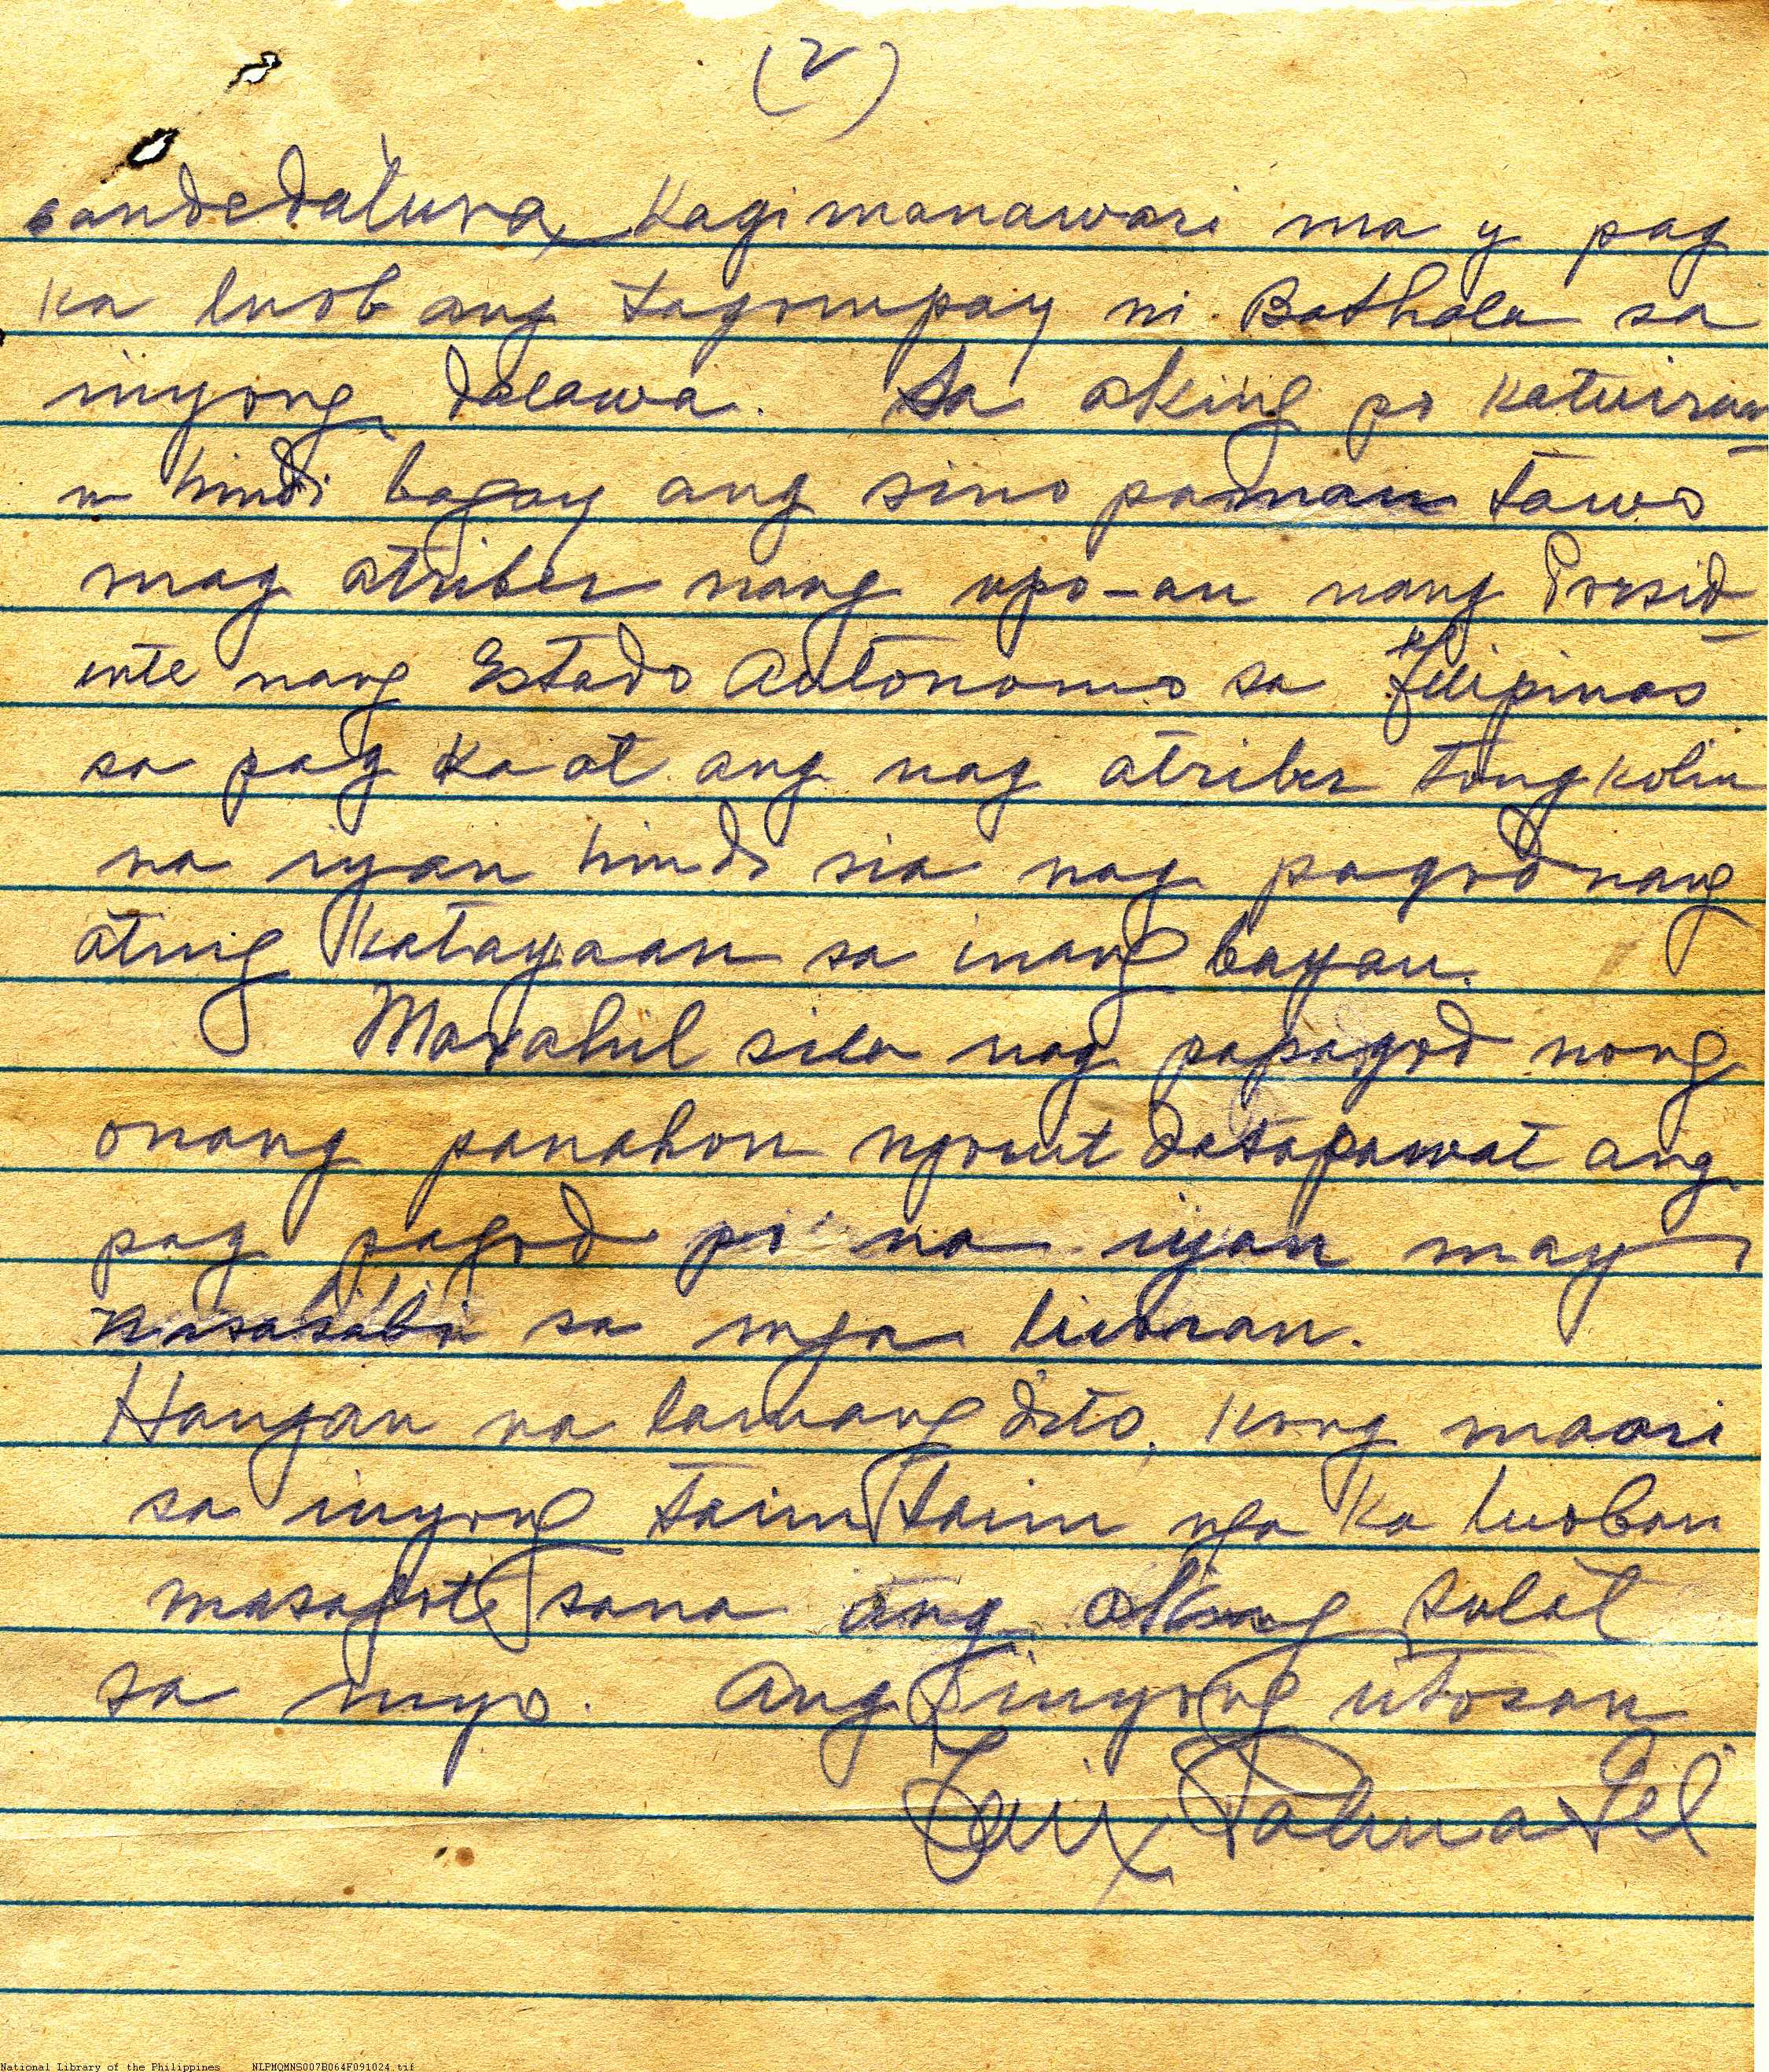 (2)
candedatura, Kagimanawari ma y pag
ka luob ang tagompay ni Bathala sa
inyong dalawa. Sa aking po katuiran
hindi bagay ang sino paman tawo
mag atriber nang upo-an nang Presid-
ente nang Estado Autonomo sa Filipinas
sa pag ka at ang nag atriber tongkolin
na iyan hindi sia nag pagod nang
ating katayaan sa inang bayan.
Marahil sila nag papagod nong
onang panahon ngunit datapawat ang
pag pagod pi na iyan may
nasasabi sa mga
Hangan na lamang dito, kong maari
sa inyong taimtaim nga ka luoban
masagot sana ang aking sulat
sa inyo. Ang inyong utosan
Palma Gil
National Library of the Philippines NLPMQMNS007B064F091024.tif